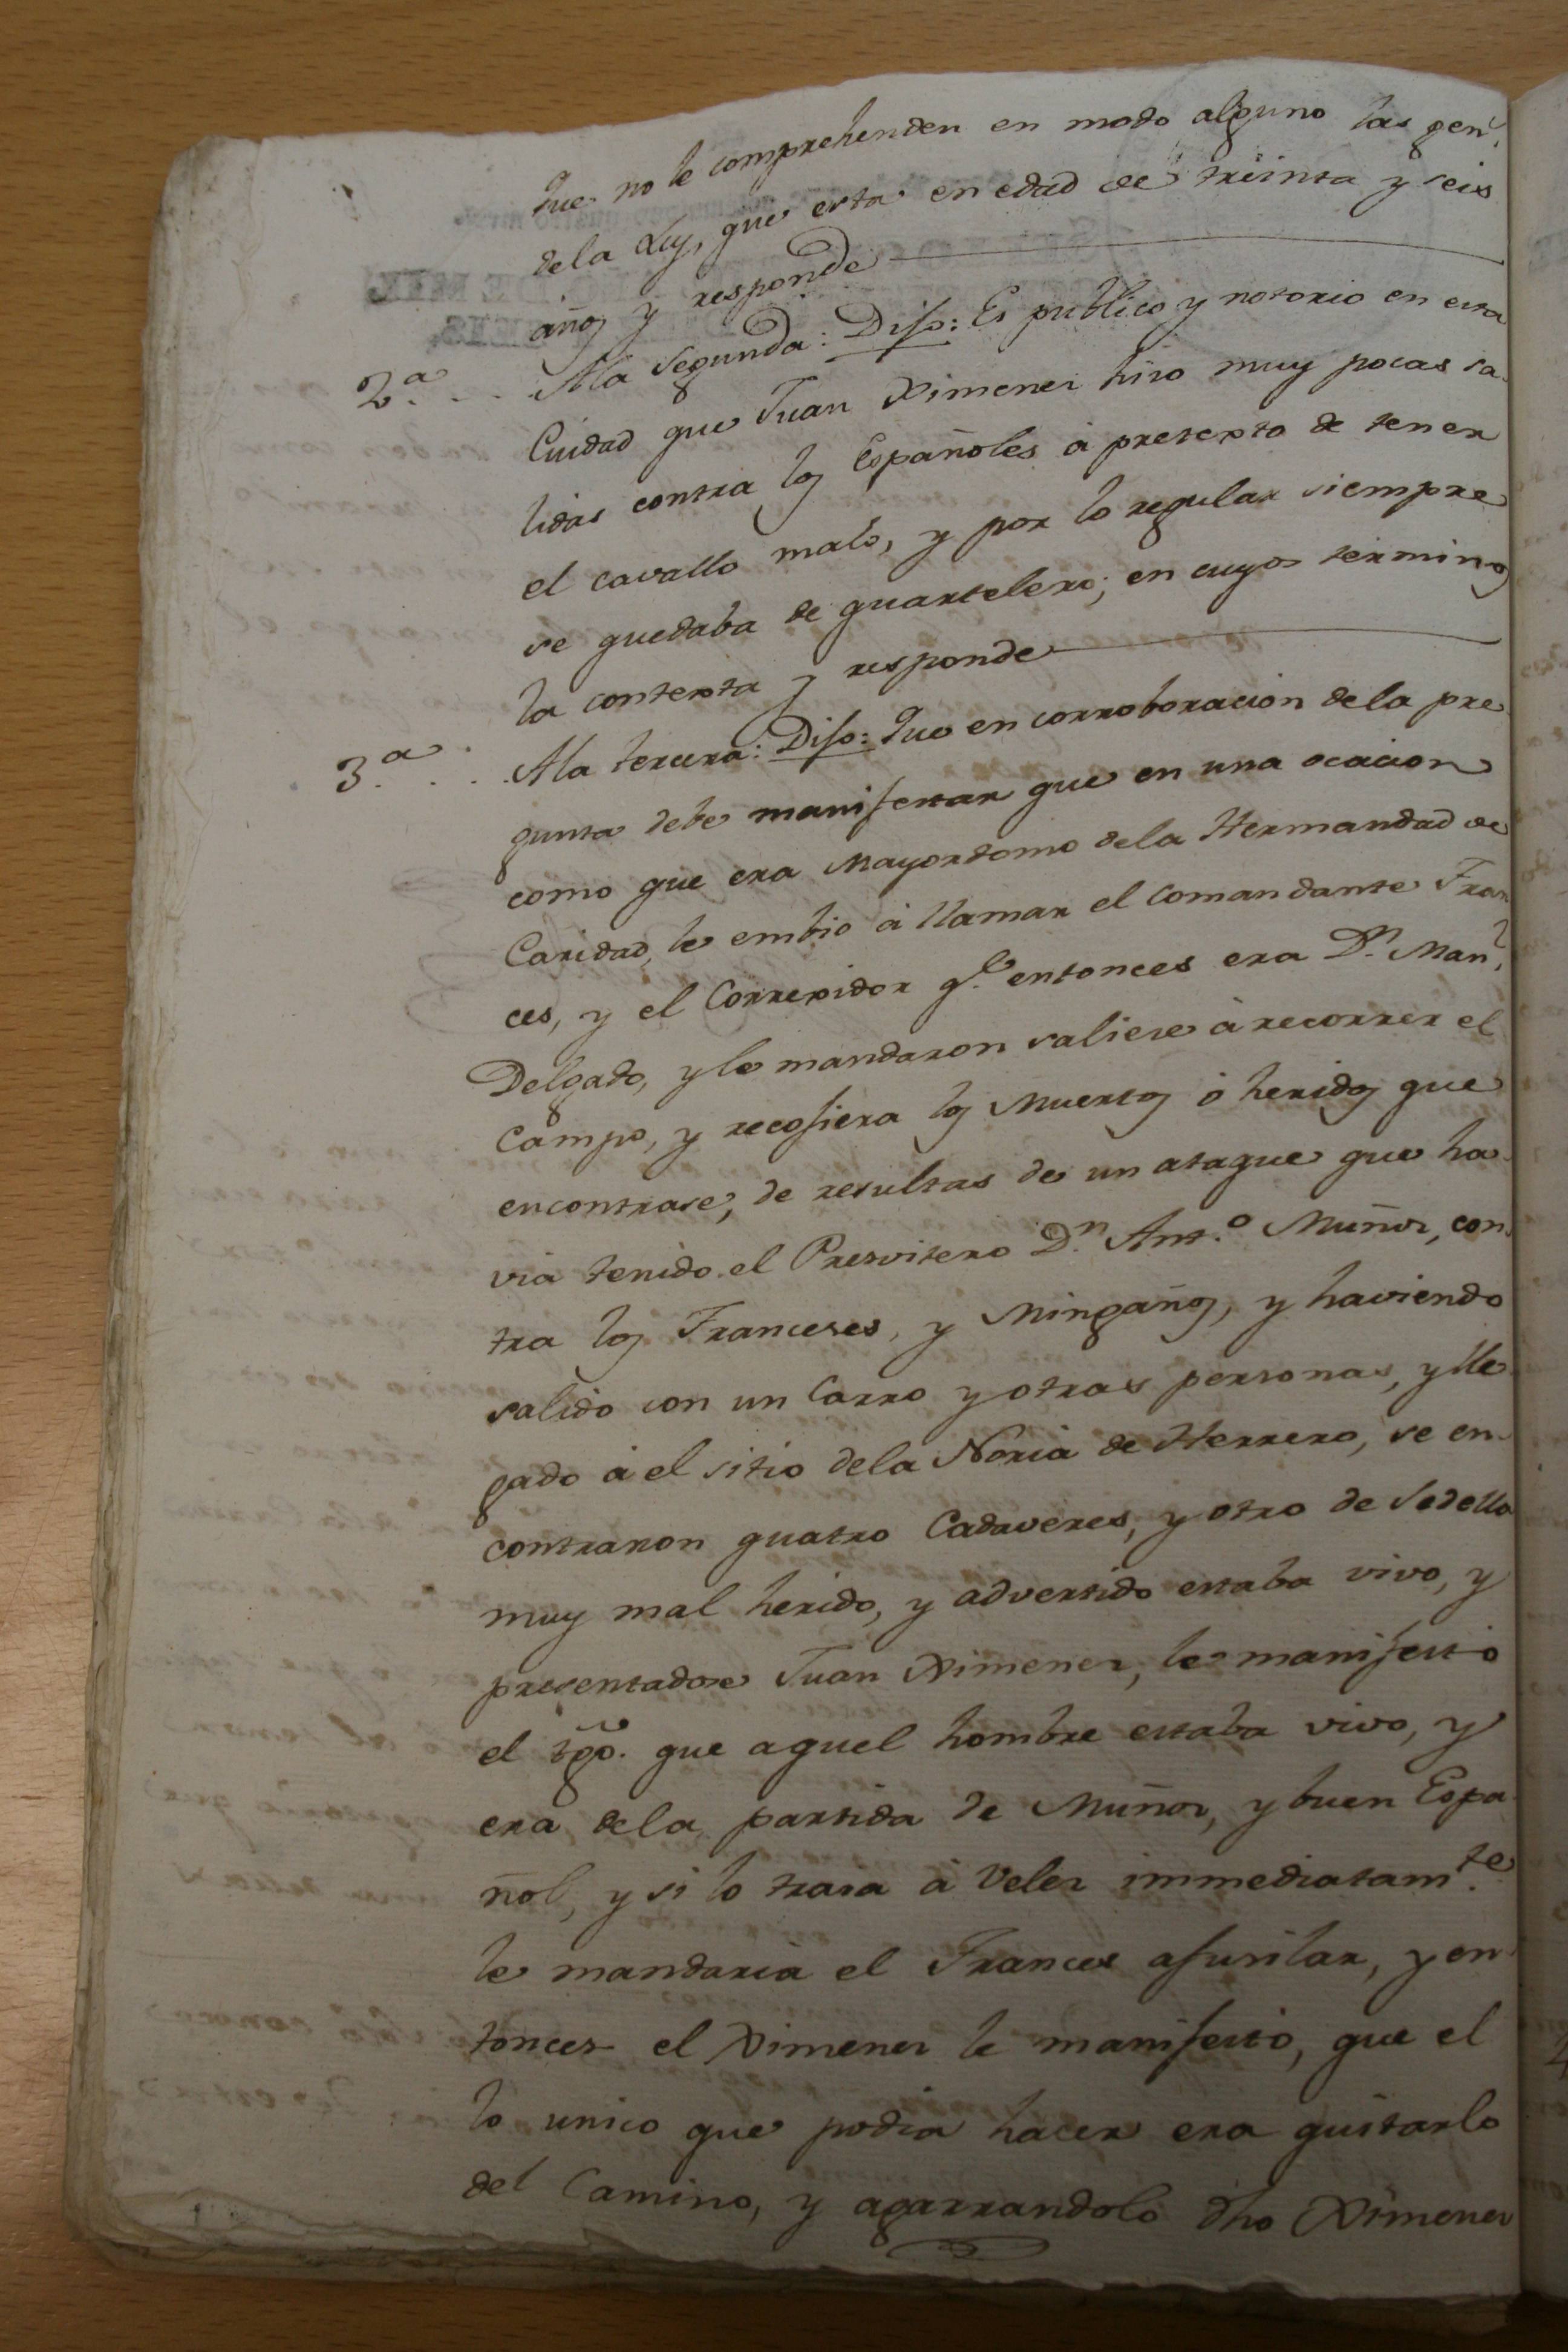 Que no le comprehenden en modo alguno las gen.s
de la Ley, que esta en edad de treinta y seis
años y responde
2.a . . . A la segunda: Dijo: Es publico y notorio en esta
Ciudad que Juan Ximenez hizo muy pocas sa-
lidas contra los Españoles à pretexto de tener
el cavallo malo, y por lo regular siempre
se quedaba de quartelero; en cuyos terminos
la contexta y responde
3.a . . . A la tercera: Dijo: Que en corroboracion de la pre-
gunta debe manifestar que en una ocacion
como que era Mayordomo de la Hermandad de
Caridad, le embio à llamar el Comandante Fran-
ces, y el Correxidor q.e entonces era D.n Man.l
Delgado, y le mandaron saliese à recorrer el
Campo, y recojiera los Muertos ò heridos que
encontrase, de resultas de un ataque que ha-
via tenido el Presvitero D.n Ant.o Muñoz, con-
tra los Franceses, y Miñgaños, y haviendo
salido con un Carro y otras personas, y lle-
gado à el sitio de la Noria de Herrero, se en-
contraron quatro Cadaveres, y otro de Sedella
muy mal herido, y advertido estaba vivo, y
presentadose Juan Ximenez, le manifestó
el tgo. que aquel hombre estaba vivo, y
era de la partida de Muñoz, y buen Espa-
ñol, y si lo traia à Velez immediatam.te
le mandaria el Frances afusilar, y en-
tonces el Ximenez le manifestó, que el
lo unico que podia hacer era quitarlo
del Camino, y agarrandolo dho Ximenez